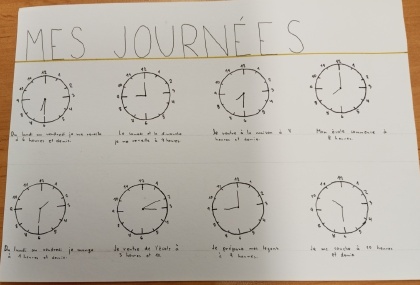 MES JOURNÉES
Du lundi au vendredi je me reveille
à 6 heures et demie.
Le samedi et le dimanche
je me reveille à 9 heures.
Je rentre à la maison à 7
heures et demie.
Mon école commence à
8 heures.
Du lundi au vendredi je mange
à 1 heures et demie.
Je rentre de l'école à
3 heures et
Je prépare mes
à heures.
Je me couche à heures
et demie.